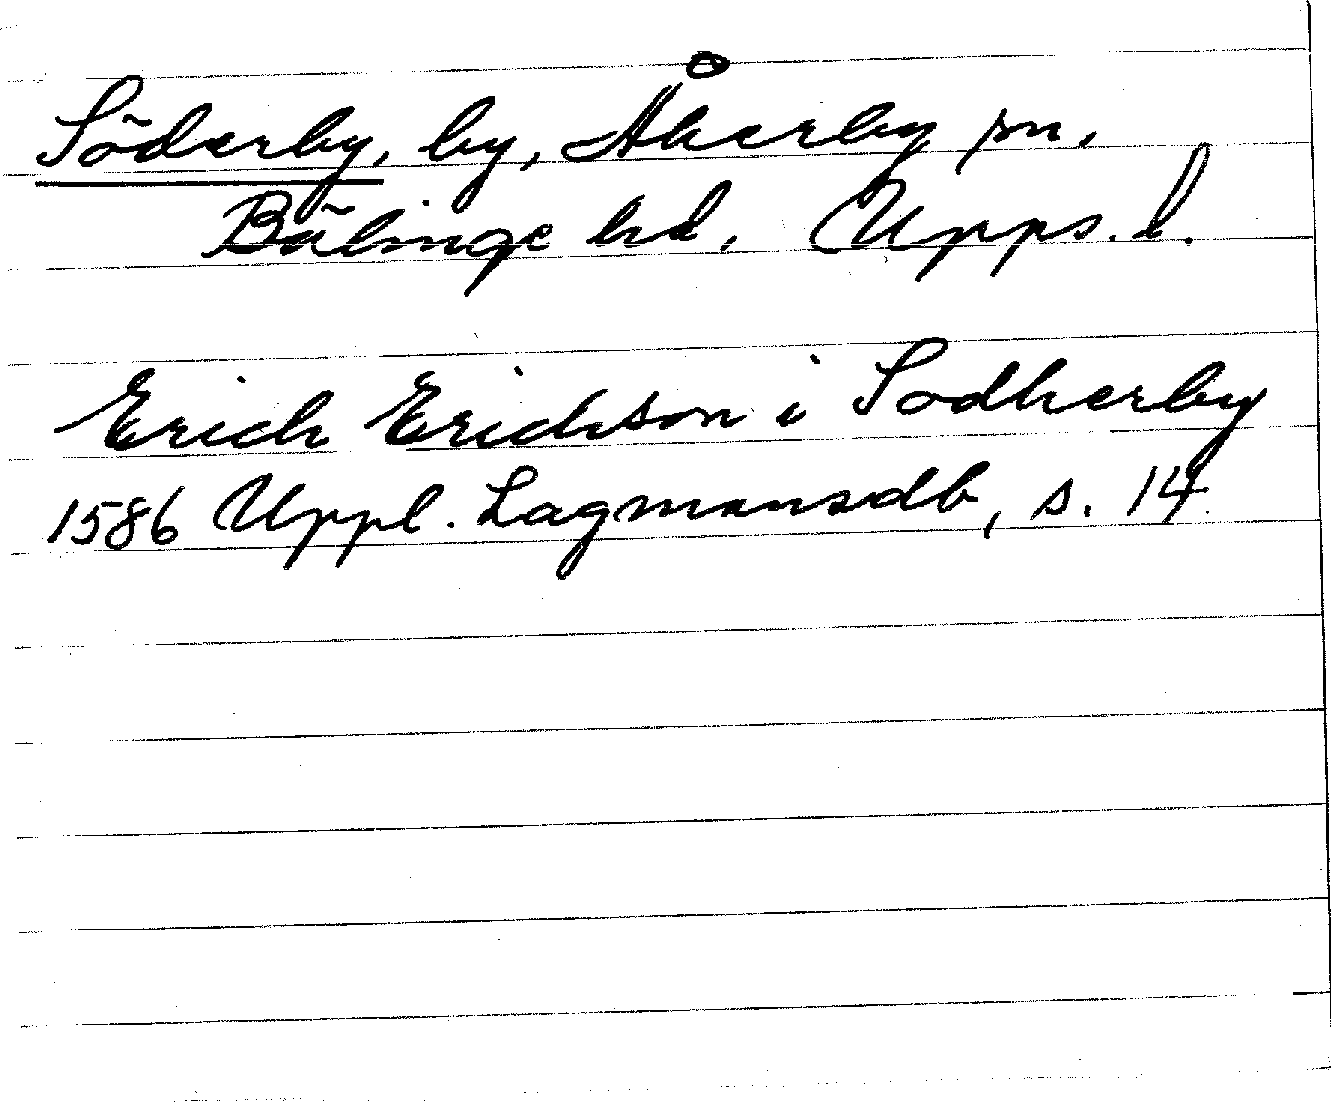 Söderby, by, Åkerby sn,
Bälinge hd, Upps. l.
Erich Erichson i Sodherby
1586 Uppl. Lagmansdb, s. 14.